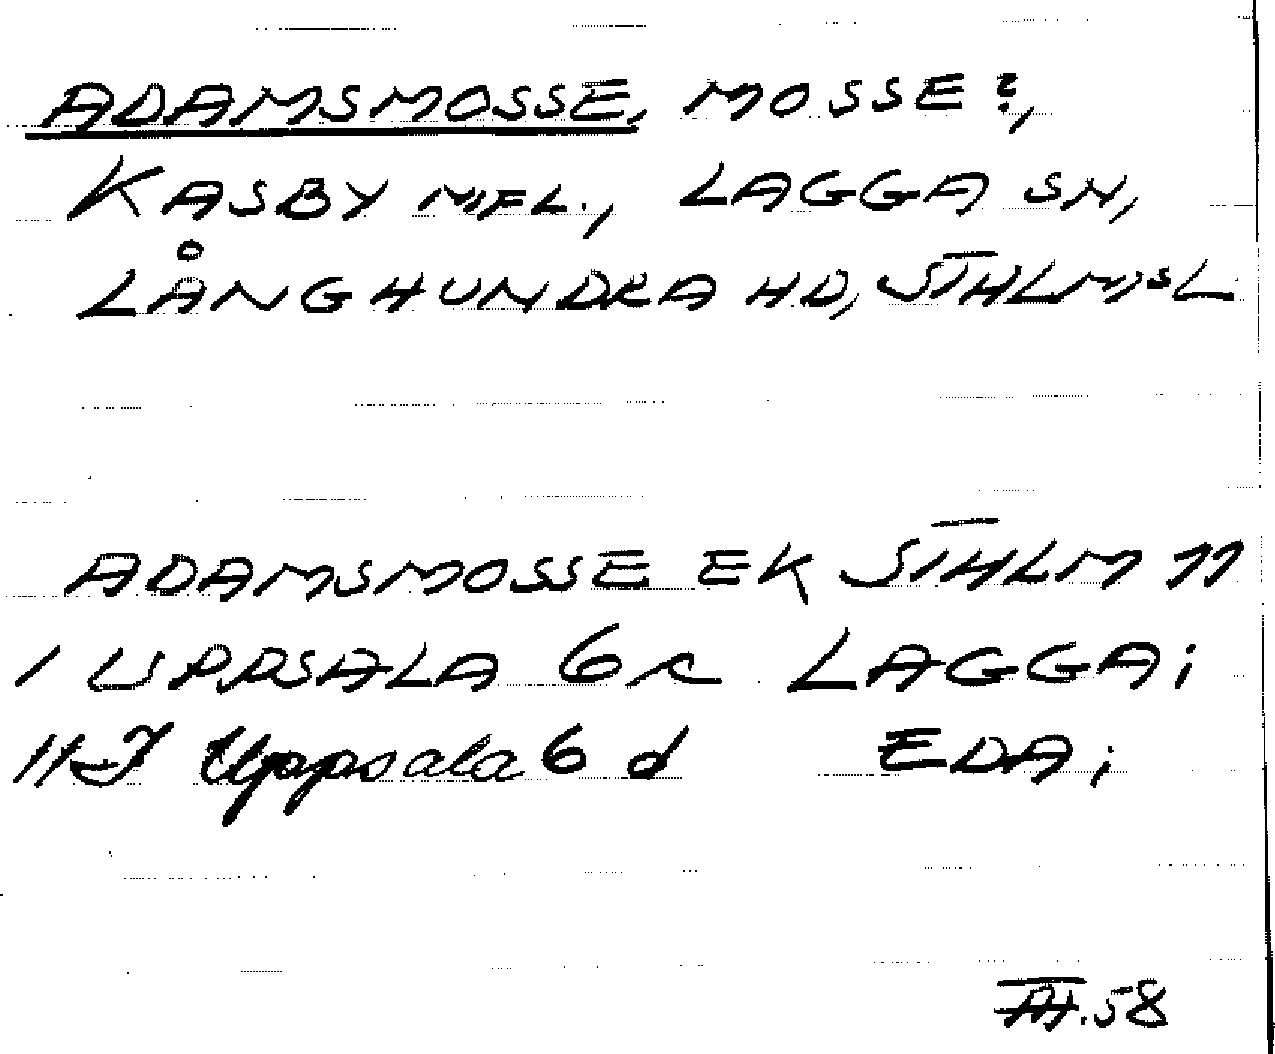 ADAMSMOSSE, MOSSE?,
KASBY MFL., LAGGA SN,
LÅNGHUNDRA HD, STHLMSL
ADAMSMOSSE EK STHLM 77
I UPPSALA 6 c LAGGA;
11 I Uppsala 6 d EDA;
.58